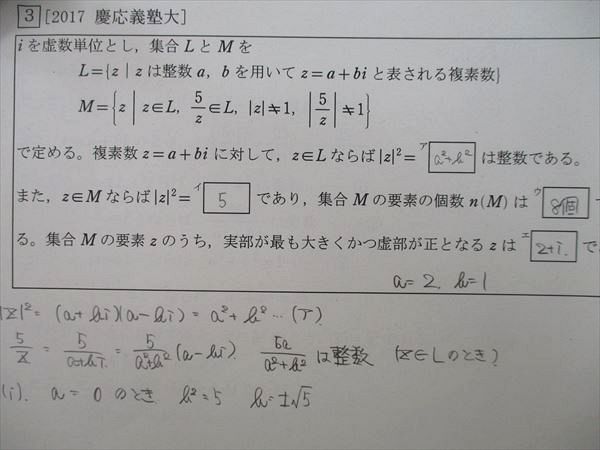 3 [2017 慶応義塾大]
iを虚数単位とし，集合LとMを
L={z | zは整数a，bを用いてz=a+biと表される複素数}
M={z | z∈L, 5/z∈L, |z|≠1, |5/z|≠1}
で定める。複素数z=a+biに対して，z∈Lならば|z|²=ア a²+b² は整数である。
また，z∈Mならば|z|²=イ 5 であり，集合Mの要素の個数n(M)はウ 8個
る。集合Mの要素zのうち，実部が最も大きくかつ虚部が正となるzはエ 2+i. で
a=2. b=1
|z|²= (a+bi)(a-bi) = a²+b² … (ア)
5/z = 5/(a+bi) = 5/(a²+b²) (a-bi). 5a/(a²+b²) は整数 (z∈Lのとき)
(i). a=0のとき b²=5 b=±√5